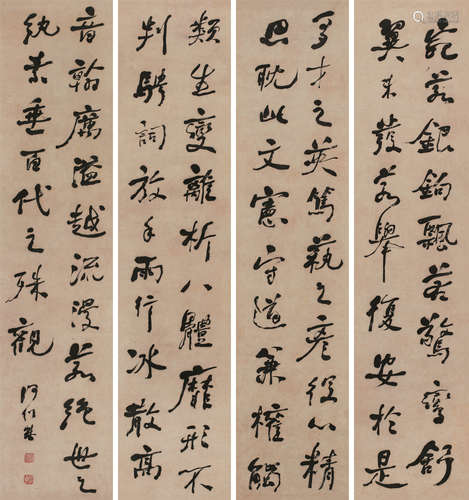 宛若銀鉤飄若驚鸞舒
翼未發若舉復安於是
多才之英篤藝之彥役心精
思耽此文憲守道兼權觸
類生變離析八體靡形不
判騁詞放手雨行冰散高
音翰厲溢越流漫著絕世之
紈素垂百代之殊觀
何紹基